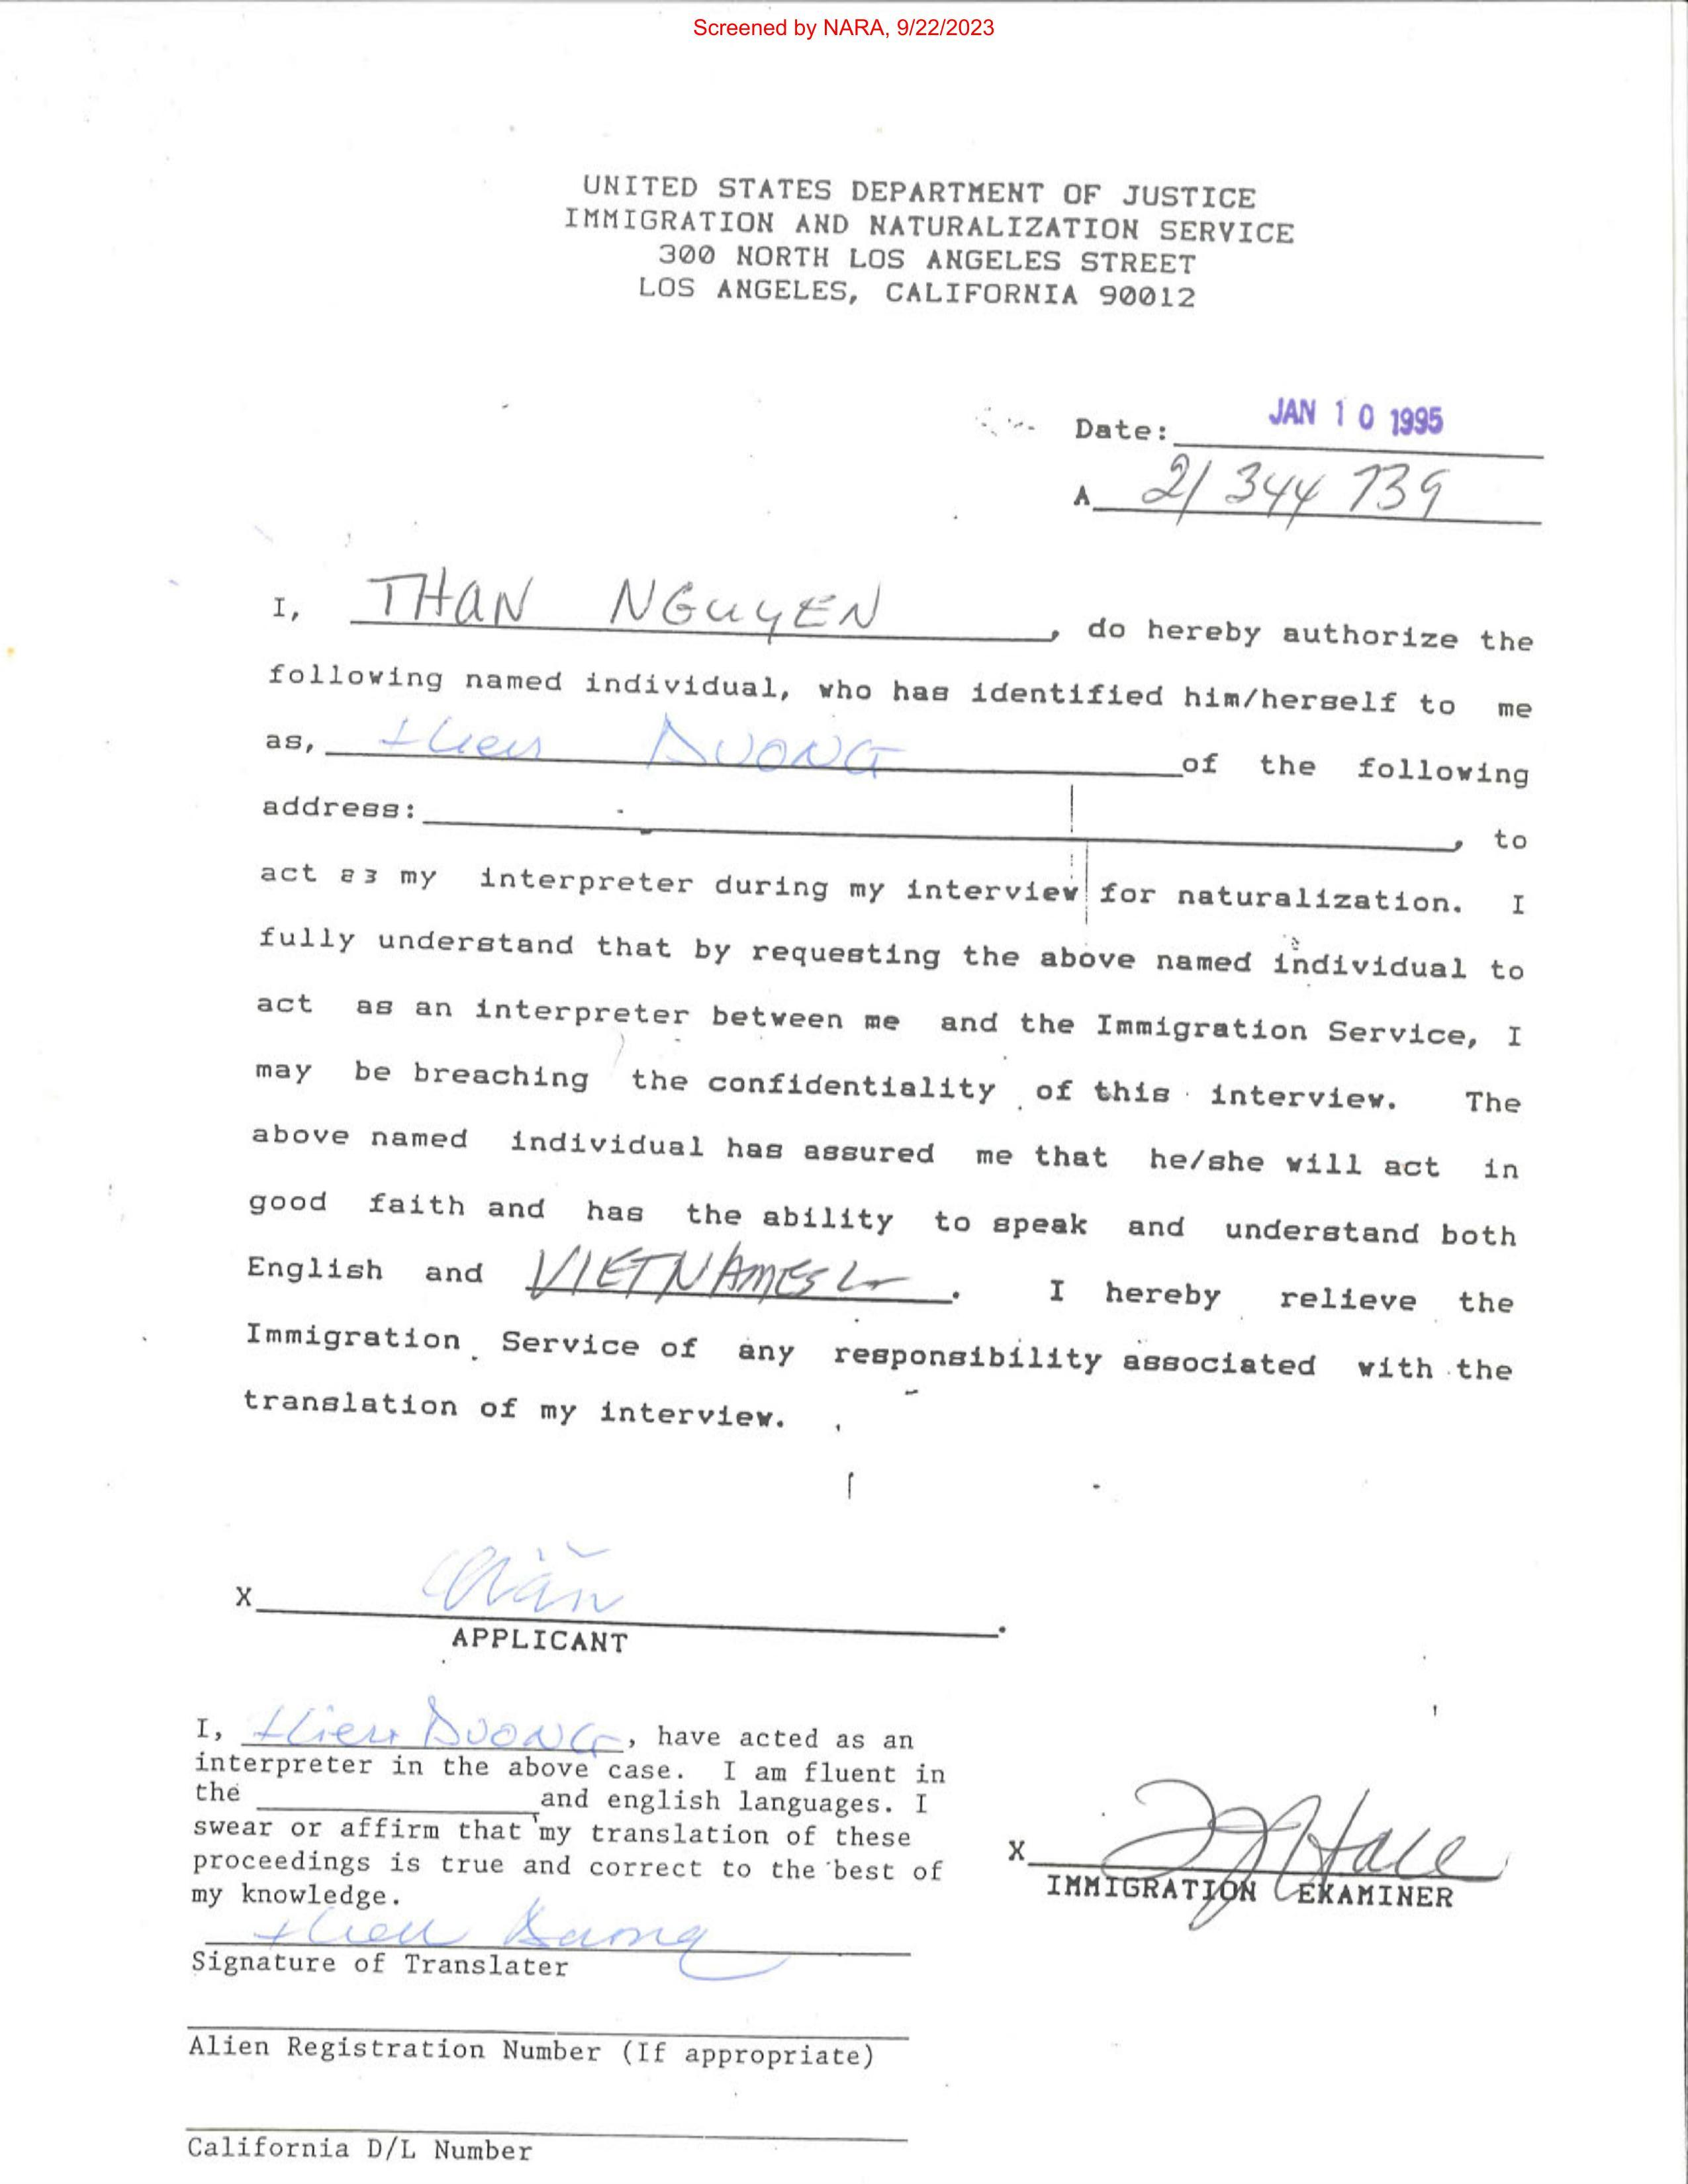 Screened by NARA, 9/22/2023
UNITED STATES DEPARTMENT OF JUSTICE
IMMIGRATION AND NATURALIZATION SERVICE
300 NORTH LOS ANGELES STREET
LOS ANGELES, CALIFORNIA 90012
Date: JAN 10 1995
A 21 344 739
I, THAN NGUYEN, do hereby authorize the
following named individual, who has identified him/herself to me
as, Hien DUONG of the following
address: , to
act as my interpreter during my interview for naturalization. I
fully understand that by requesting the above named individual to
act as an interpreter between me and the Immigration Service, I
may be breaching the confidentiality of this interview. The
above named individual has assured me that he/she will act in
good faith and has the ability to speak and understand both
English and VIETNAMESE. I hereby relieve the
Immigration Service of any responsibility associated with the
translation of my interview.
X
APPLICANT
I, Hien DUONG, have acted as an
interpreter in the above case. I am fluent in
the and english languages. I
swear or affirm that my translation of these
proceedings is true and correct to the best of
my knowledge.
Hien Duong
Signature of Translater
X Hale
IMMIGRATION EXAMINER
Alien Registration Number (If appropriate)
California D/L Number